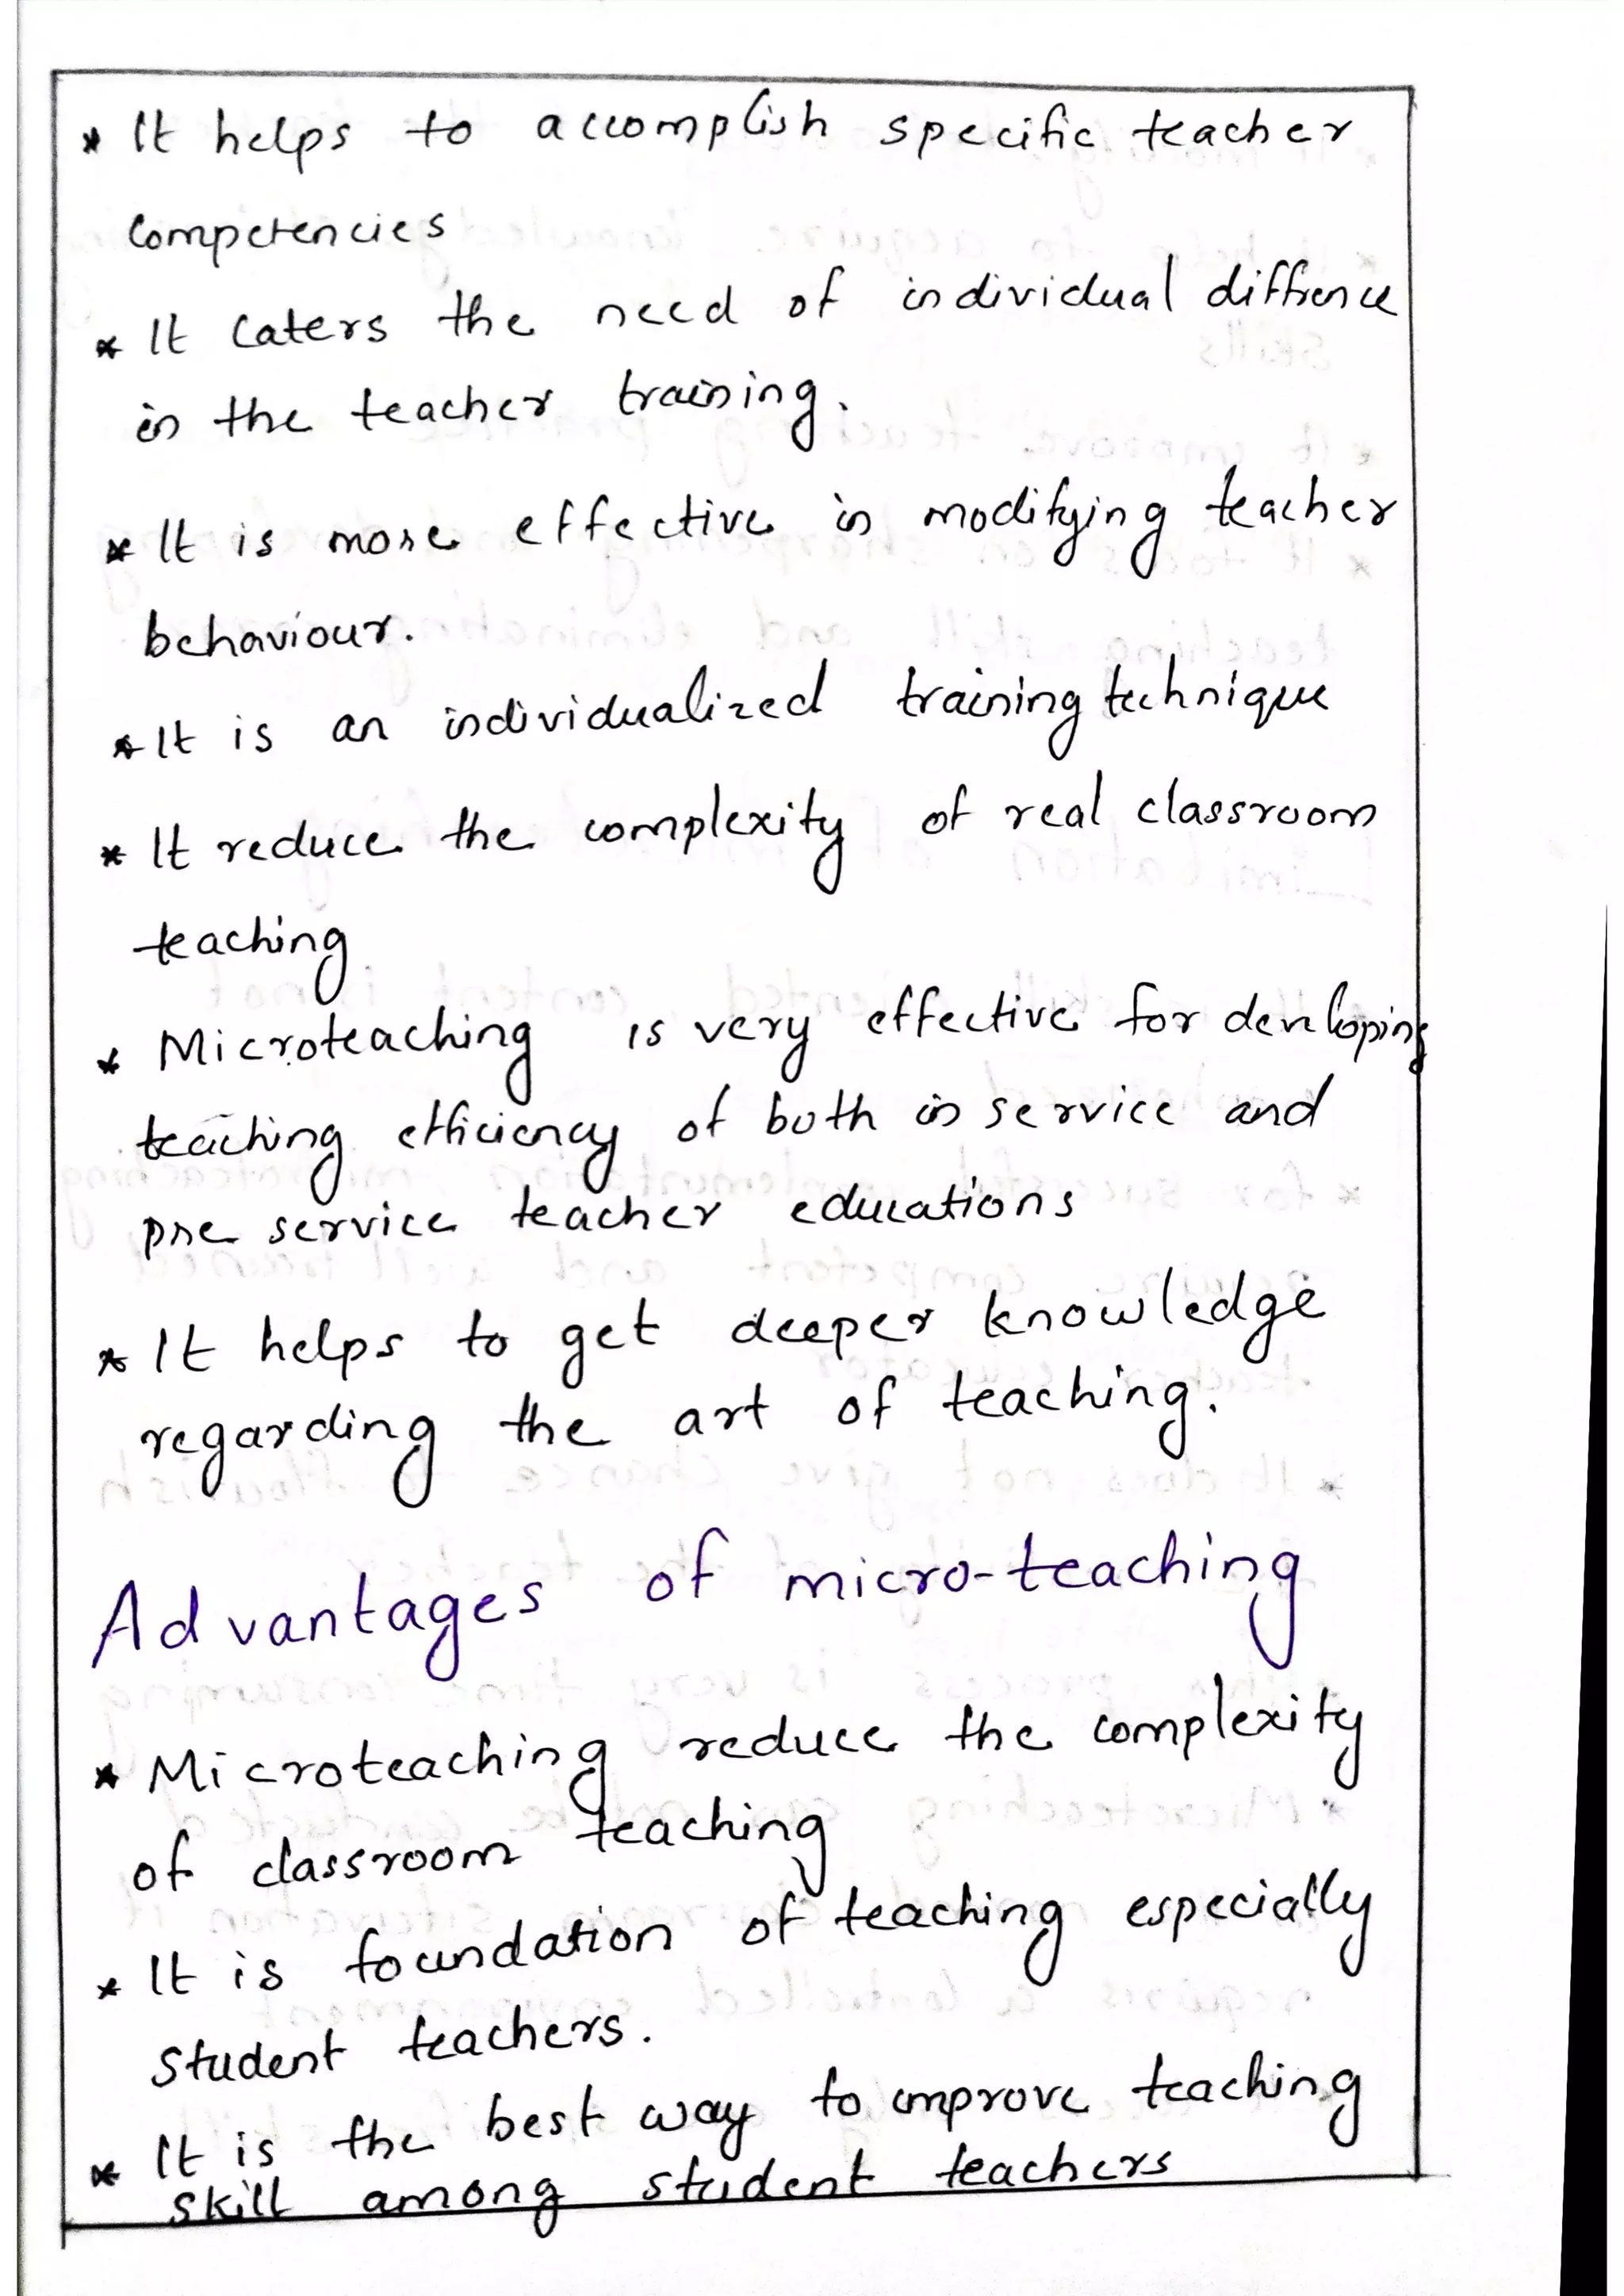 * It helps to accomplish specific teacher
Competencies
* It Caters the need of individual diffrence
in the teacher training.
* It is more effective in modifying teacher
behaviour.
* It is an individualized training technique
* It reduce the complexity of real classroom
teaching
* Microteaching is very effective for developing
teaching efficiency of both in service and
pre service teacher educations
* It helps to get deeper knowledge
regarding the art of teaching.
Advantages of micro-teaching
* Microteaching reduce the complexity
of classroom teaching
* It is foundation of teaching especially
Student teachers.
* It is the best way to improve teaching
skill among student teachers